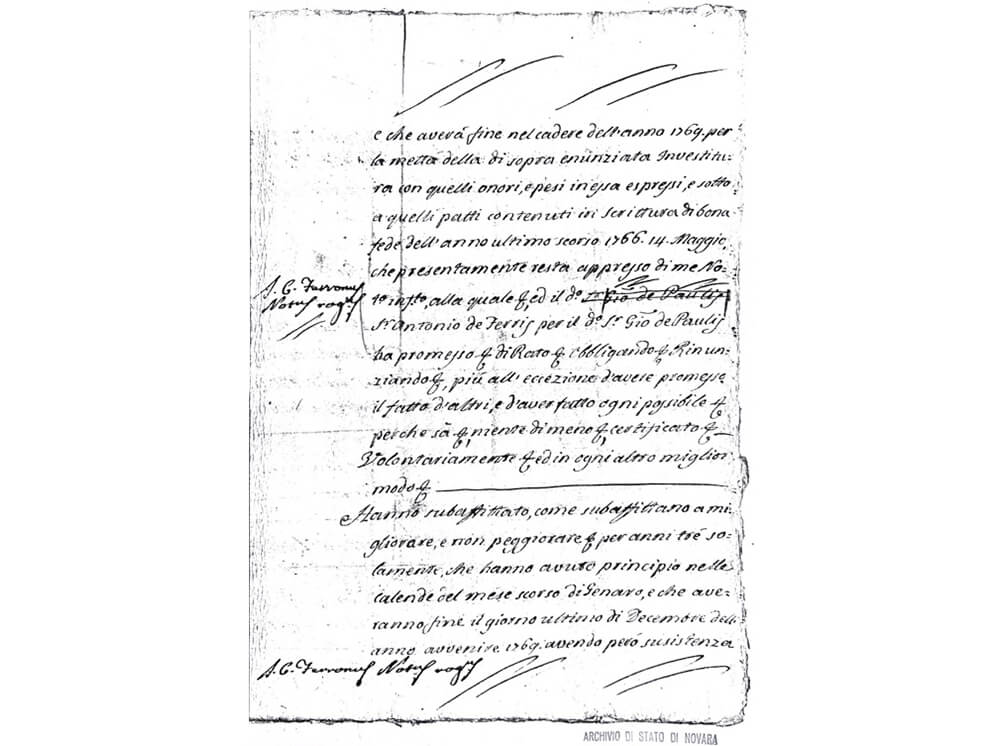 e che averà fine nel cadere dell'anno 1769. per
la mettà della di sopra enunziata Investitu:
ra con quelli onori, e pesi in essa espressi, e sotto
a quelli patti contenuti in scrittura di bona
fede dell'anno ultimo scorso 1766. 14. Maggio,
che presentamente resta appresso di me No:
J. C. Ferronus
Notus rog.s
to inf.to alla quale &, ed il do. Sr. Gio de Paulis
Sr. Antonio de Ferris per il do. Sr. Gio de Paulis
ha promesso & di Rato & Obbligando & Rinun:
ziando &, più all'eccezione d'avere promesse
il fatto d'altri, e d'aver fatto ogni possibile &
perche sà &, mente di meno &, certificato &
Volontariamente & ed in ogni altro miglior
modo &
e Hanno subaffittato, come subaffittano a mi:
gliorare, e non peggiorare & per anni tré so:
lamente, che hanno avuto principio nelle
calende del mese scorso di Genaro, e che ave:
ranno fine il giorno ultimo di Decembre dell'
anno avvenire 1769. avendo però susistenza
J. C. Ferronus Notus rog.s
ARCHIVIO DI STATO DI NOVARA